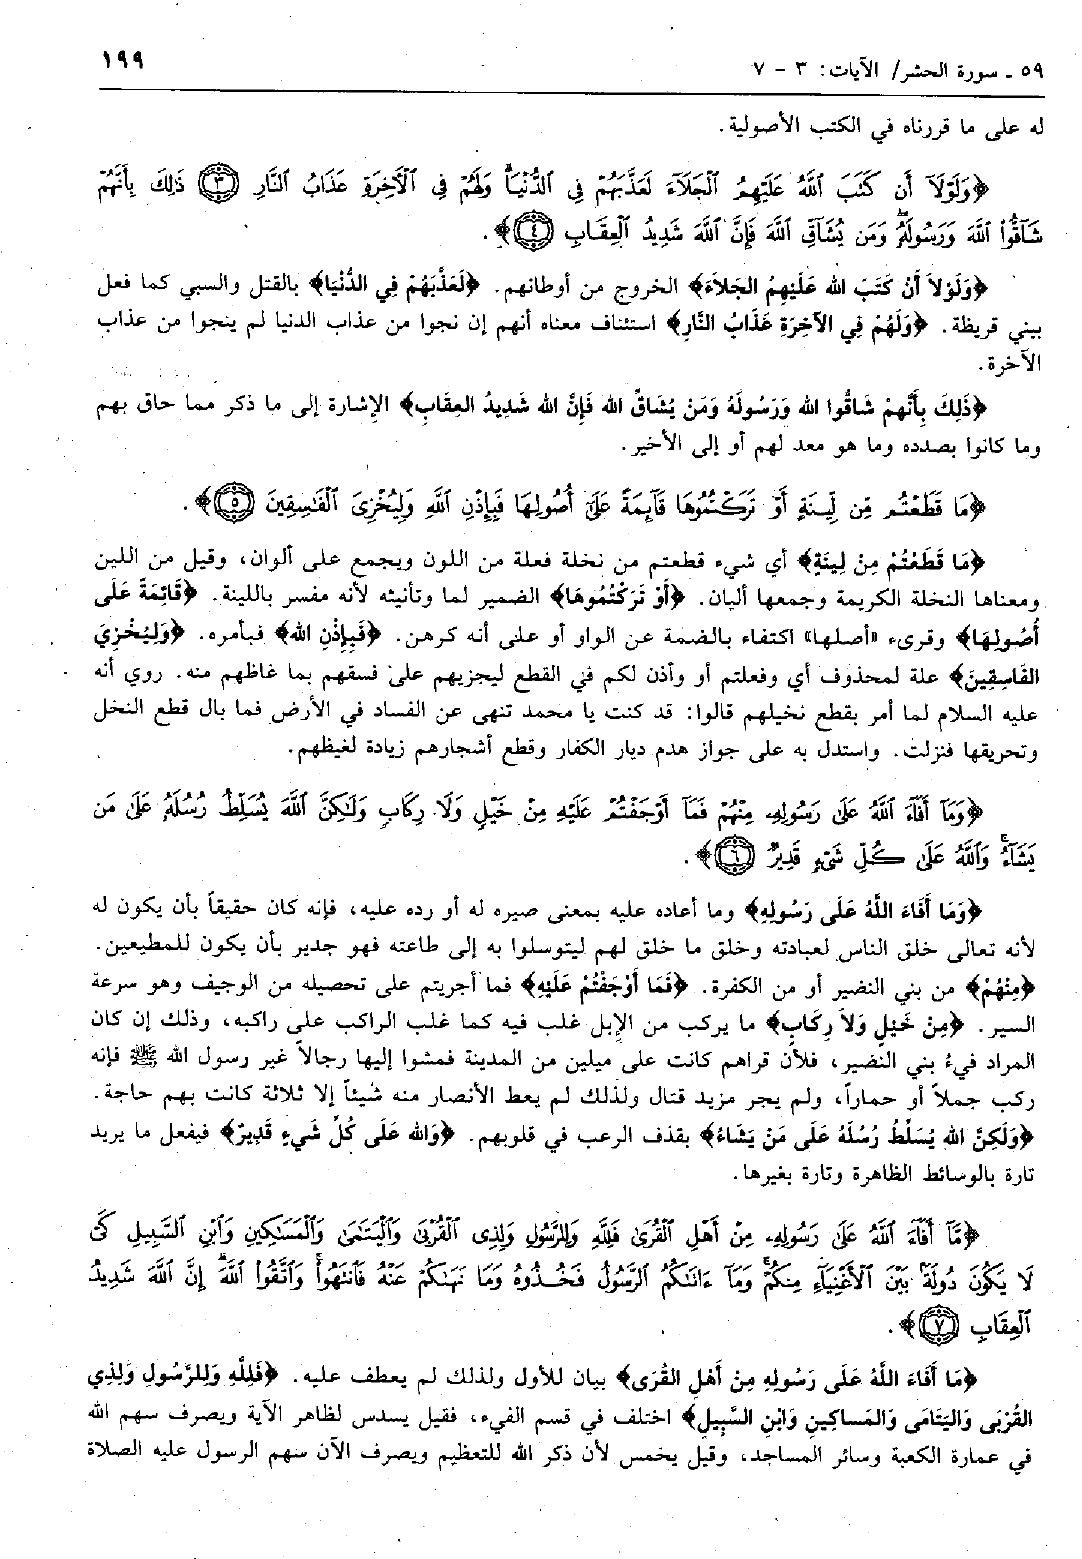 ٥٩ ـ سورة الحشر/ الآيات: ٣ - ٧
١٩٩
له على ما قررناه في الكتب الأصولية.
﴿وَلَوْلَآ أَن كَتَبَ ٱللَّهُ عَلَيْهِمُ ٱلْجَلَآءَ لَعَذَّبَهُمْ فِى ٱلدُّنْيَا ۖ وَلَهُمْ فِى ٱلْآخِرَةِ عَذَابُ ٱلنَّارِ ٣ ذَٰلِكَ بِأَنَّهُمْ
شَآقُّوا۟ ٱللَّهَ وَرَسُولَهُۥ ۖ وَمَن يُشَآقِّ ٱللَّهَ فَإِنَّ ٱللَّهَ شَدِيدُ ٱلْعِقَابِ ٤﴾.
﴿وَلَوْلاَ أَنْ كَتَبَ الله عَلَيْهِمُ الجَلاَءَ﴾ الخروج من أوطانهم. ﴿لَعَذَّبَهُمْ فِي الدُّنْيَا﴾ بالقتل والسبي كما فعل
ببني قريظة. ﴿وَلَهُمْ فِي الآخِرَةِ عَذَابُ النَّارِ﴾ استئناف معناه أنهم إن نجوا من عذاب الدنيا لم ينجوا من عذاب
الآخرة.
﴿ذَلِكَ بِأَنَّهمْ شَاقُّوا الله وَرَسُولَهُ وَمَنْ يُشَاقِّ الله فَإِنَّ الله شَدِيدُ العِقَابِ﴾ الإشارة إلى ما ذكر مما حاق بهم
وما كانوا بصدده وما هو معد لهم أو إلى الأخير.
﴿مَا قَطَعْتُم مِّن لِّينَةٍ أَوْ تَرَكْتُمُوهَا قَآئِمَةً عَلَىٰٓ أُصُولِهَا فَبِإِذْنِ ٱللَّهِ وَلِيُخْزِىَ ٱلْفَٰسِقِينَ ٥﴾.
﴿مَا قَطَعْتُمْ مِنْ لِينَةٍ﴾ أي شيء قطعتم من نخلة فعلة من اللون ويجمع على ألوان، وقيل من اللين
ومعناها النخلة الكريمة وجمعها أليان. ﴿أَوْ تَرَكْتُمُوهَا﴾ الضمير لما وتأنيثه لأنه مفسر باللينة. ﴿قَائِمَةً عَلَى
أُصُولِهَا﴾ وقرىء «أصلها» اكتفاء بالضمة عن الواو أو على أنه كرهن. ﴿فَبِإِذْنِ الله﴾ فبأمره. ﴿وَلِيُخْزِيَ
الفَاسِقِينَ﴾ علة لمحذوف أي وفعلتم أو وأذن لكم في القطع ليجزيهم على فسقهم بما غاظهم منه. روي أنه
عليه السلام لما أمر بقطع نخيلهم قالوا: قد كنت يا محمد تنهى عن الفساد في الأرض فما بال قطع النخل
وتحريقها فنزلت. واستدل به على جواز هدم ديار الكفار وقطع أشجارهم زيادة لغيظهم.
﴿وَمَآ أَفَآءَ ٱللَّهُ عَلَىٰ رَسُولِهِۦ مِنْهُمْ فَمَآ أَوْجَفْتُمْ عَلَيْهِ مِنْ خَيْلٍ وَلَا رِكَابٍ وَلَٰكِنَّ ٱللَّهَ يُسَلِّطُ رُسُلَهُۥ عَلَىٰ مَن
يَشَآءُ ۚ وَٱللَّهُ عَلَىٰ كُلِّ شَىْءٍ قَدِيرٌ ٦﴾.
﴿وَمَا أَفَاءَ اللَّهُ عَلَى رَسُولِهِ﴾ وما أعاده عليه بمعنى صيره له أو رده عليه، فإنه كان حقيقاً بأن يكون له
لأنه تعالى خلق الناس لعبادته وخلق ما خلق لهم ليتوسلوا به إلى طاعته فهو جدير بأن يكون للمطيعين.
﴿مِنْهُمْ﴾ من بني النضير أو من الكفرة. ﴿فَمَا أَوْجَفْتُمْ عَلَيْهِ﴾ فما أجريتم على تحصيله من الوجيف وهو سرعة
السير. ﴿مِنْ خَيْلٍ وَلاَ رِكَابٍ﴾ ما يركب من الإبل غلب فيه كما غلب الراكب على راكبه، وذلك إن كان
المراد فيءُ بني النضير، فلأن قراهم كانت على ميلين من المدينة فمشوا إليها رجالاً غير رسول الله ﷺ فإنه
ركب جملاً أو حماراً، ولم يجر مزيد قتال ولذلك لم يعط الأنصار منه شيئاً إلا ثلاثة كانت بهم حاجة.
﴿وَلَكِنَّ الله يُسَلِّطُ رُسُلَهُ عَلَى مَنْ يَشَاءُ﴾ بقذف الرعب في قلوبهم. ﴿وَالله عَلَى كُلِّ شَيءٍ قَدِيرٌ﴾ فيفعل ما يريد
تارة بالوسائط الظاهرة وتارة بغيرها.
﴿مَّآ أَفَآءَ ٱللَّهُ عَلَىٰ رَسُولِهِۦ مِنْ أَهْلِ ٱلْقُرَىٰ فَلِلَّهِ وَلِلرَّسُولِ وَلِذِى ٱلْقُرْبَىٰ وَٱلْيَتَٰمَىٰ وَٱلْمَسَٰكِينِ وَٱبْنِ ٱلسَّبِيلِ كَىْ
لَا يَكُونَ دُولَةًۢ بَيْنَ ٱلْأَغْنِيَآءِ مِنكُمْ ۚ وَمَآ ءَاتَىٰكُمُ ٱلرَّسُولُ فَخُذُوهُ وَمَا نَهَىٰكُمْ عَنْهُ فَٱنتَهُوا۟ ۚ وَٱتَّقُوا۟ ٱللَّهَ ۖ إِنَّ ٱللَّهَ شَدِيدُ
ٱلْعِقَابِ ٧﴾.
﴿مَا أَفَاءَ اللَّهُ عَلَى رَسُولِهِ مِنْ أَهْلِ القُرَى﴾ بيان للأول ولذلك لم يعطف عليه. ﴿فَلِلَّهِ وَلِلرَّسُولِ وَلِذِي
القُرْبَى وَاليَتَامَى وَالمَساكِينِ وَابْنِ السَّبِيلِ﴾ اختلف في قسم الفيء، فقيل يسدس لظاهر الآية ويصرف سهم الله
في عمارة الكعبة وسائر المساجد، وقيل يخمس لأن ذكر الله للتعظيم ويصرف الآن سهم الرسول عليه الصلاة